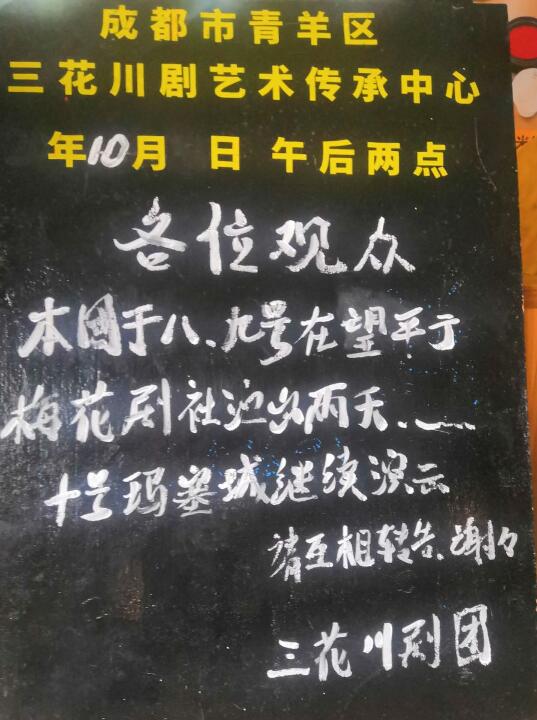 成都市青羊区
三花川剧艺术传承中心
年10月 日 午后两点
各位观众
本团于八、九号在望平于
梅花剧社演出两天、
十号玛塞城继续演出
请互相转告、谢々
三花川剧团